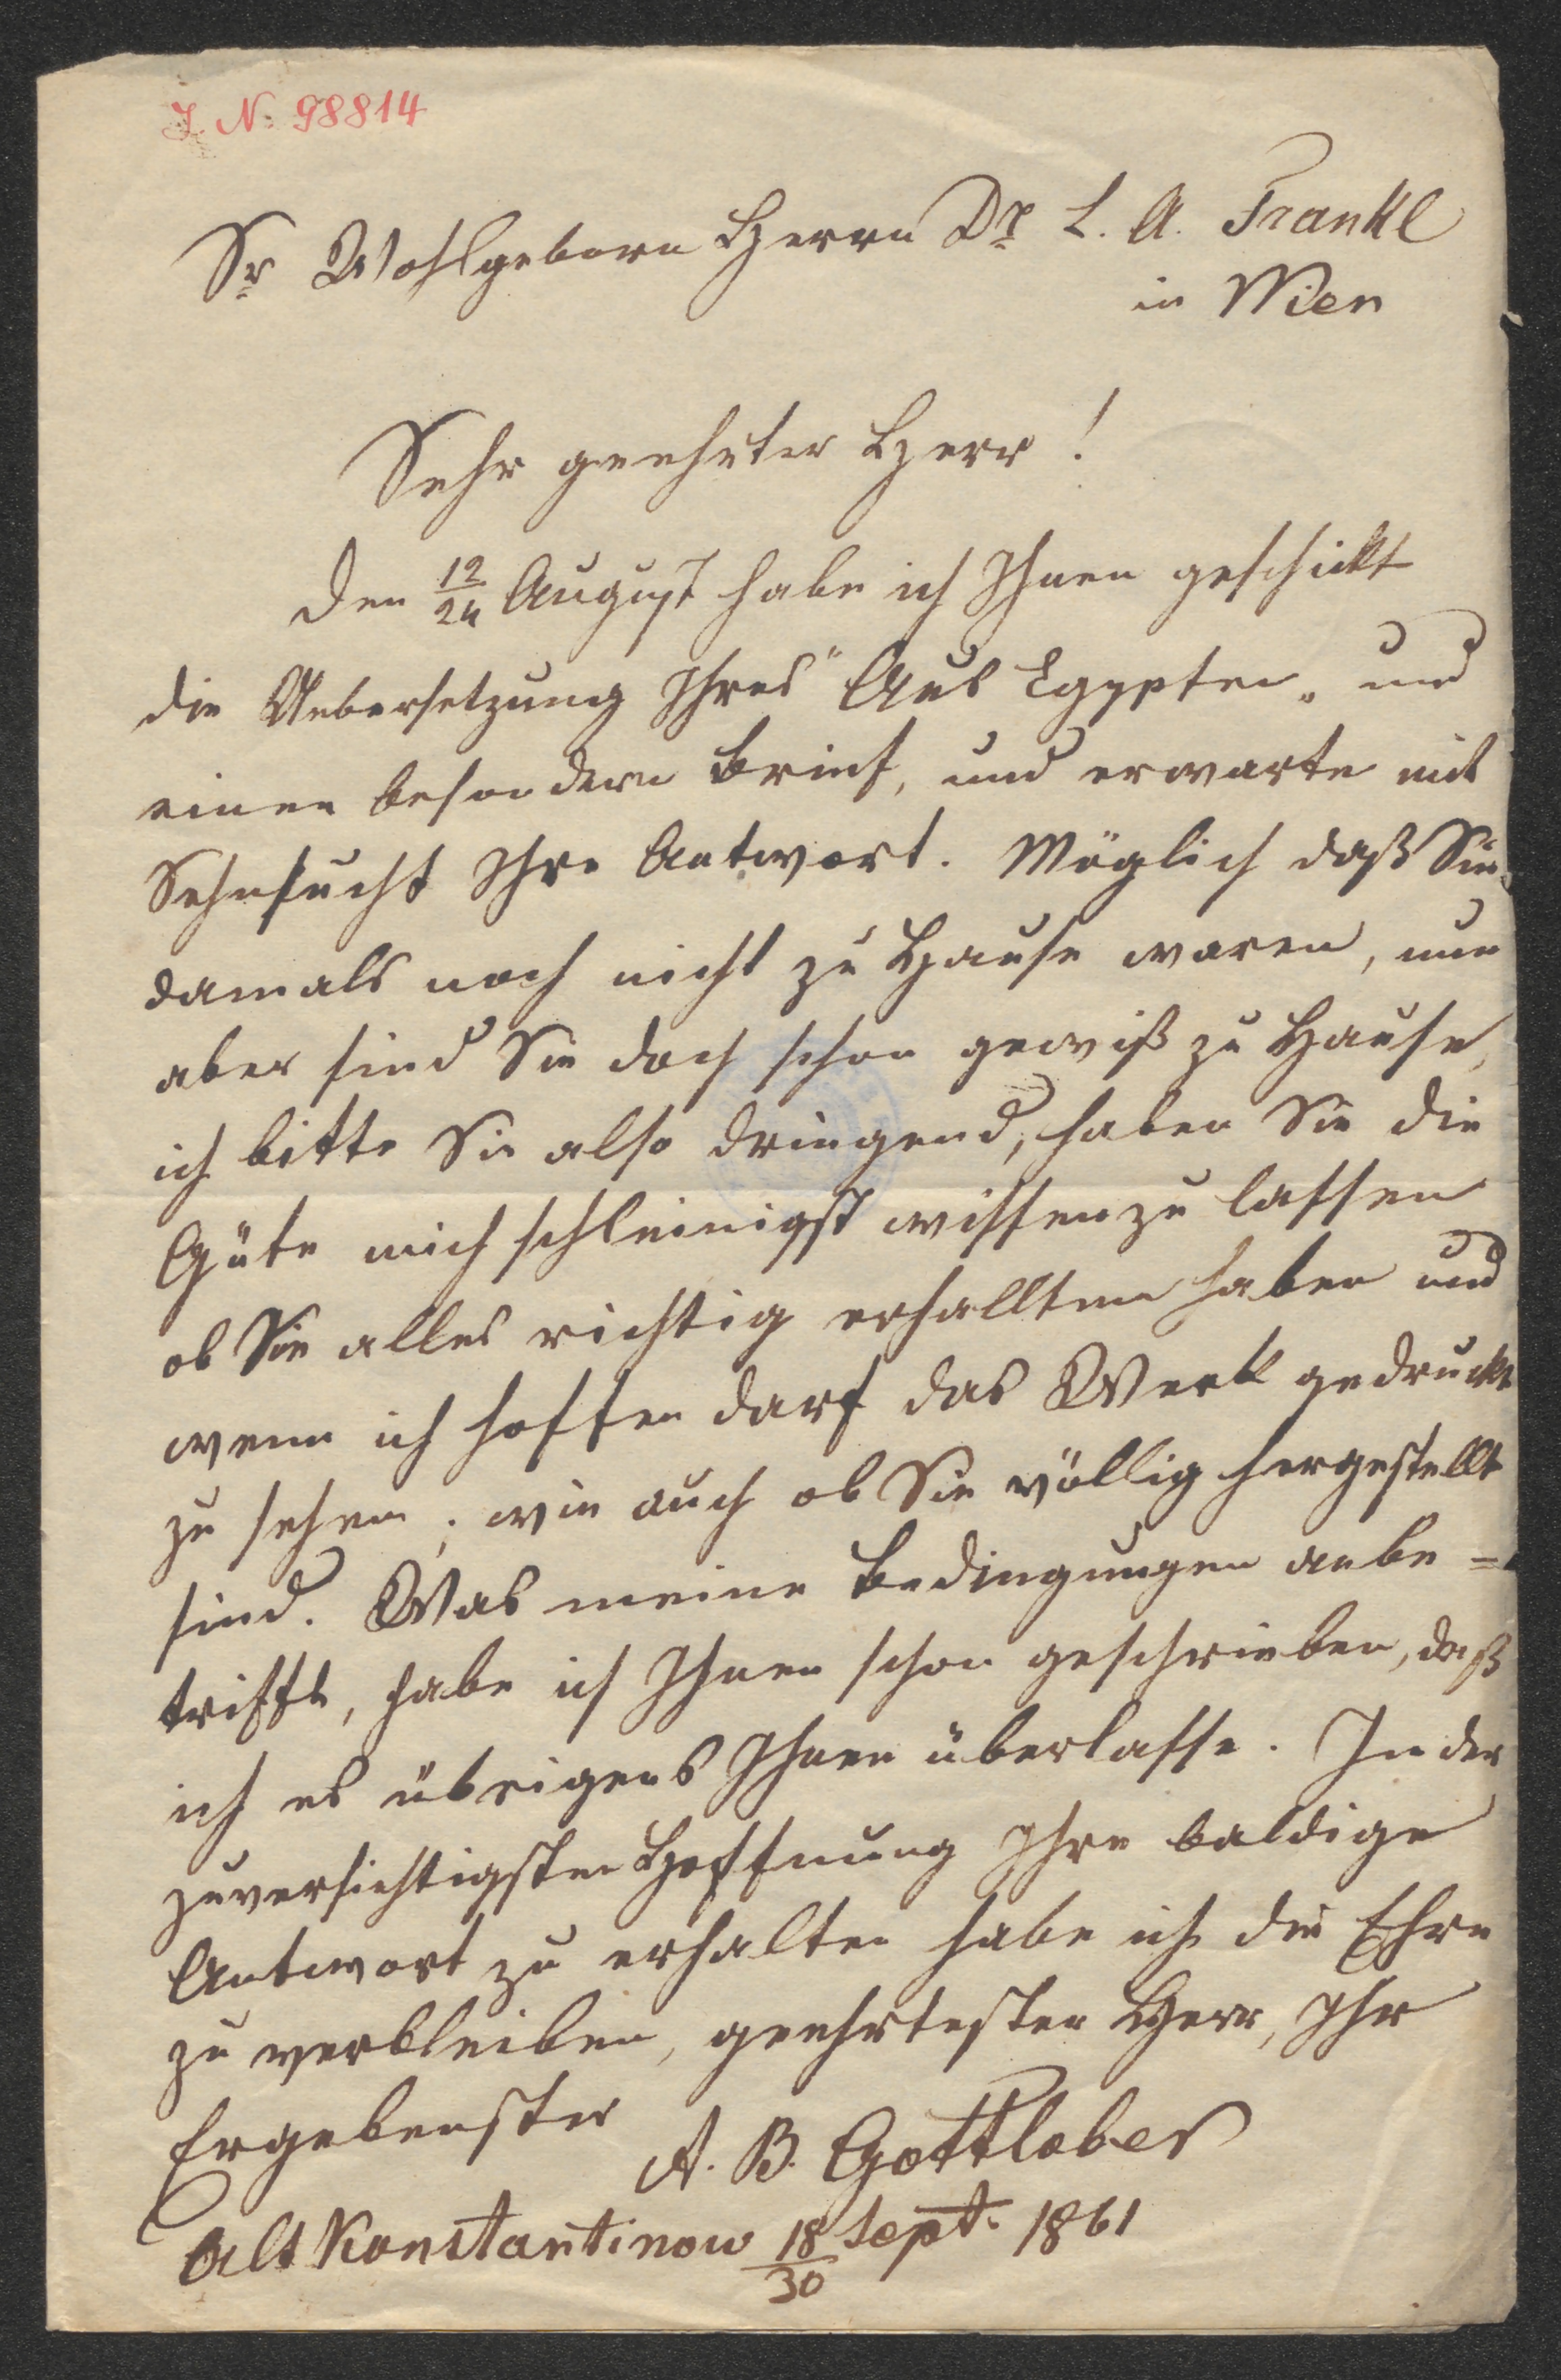 I. N. 98814
Sr Wohlgeborn Herrn Dr L. A. Frankl
in Wien
Sehr geehrter Herr!
Den 12/24 August habe ich Ihnen geschickt
die Uebersetzung Ihres "Aus Egypten" und
einen besondern Brief, und erwarte mit
Sehnsucht Ihre Antwort. Möglich daß Sie
damals noch nicht zu Hause waren, nun
aber sind Sie doch schon gewiß zu Hause,
ich bitte Sie also dringend, haben Sie die
Güte mich schleinigst wissen zu lassen
ob Sie alles richtig erhallten haben und
wenn ich hoffen darf das Werk gedruckt
zu sehen; wie auch ob Sie völlig hergestellt
sind. Was meine Bedingungen anbe=
trifft, habe ich Ihnen schon geschrieben, daß
ich es übrigens Ihnen überlasse. In der
zuversichtigsten Hoffnung Ihre baldige
Antwort zu erhalten habe ich die Ehre
zu verbleiben, geehrtester Herr, Ihr
Ergebenster
A. B. Gottlober
Alt Konstantinow 18/30 Sept. 1861